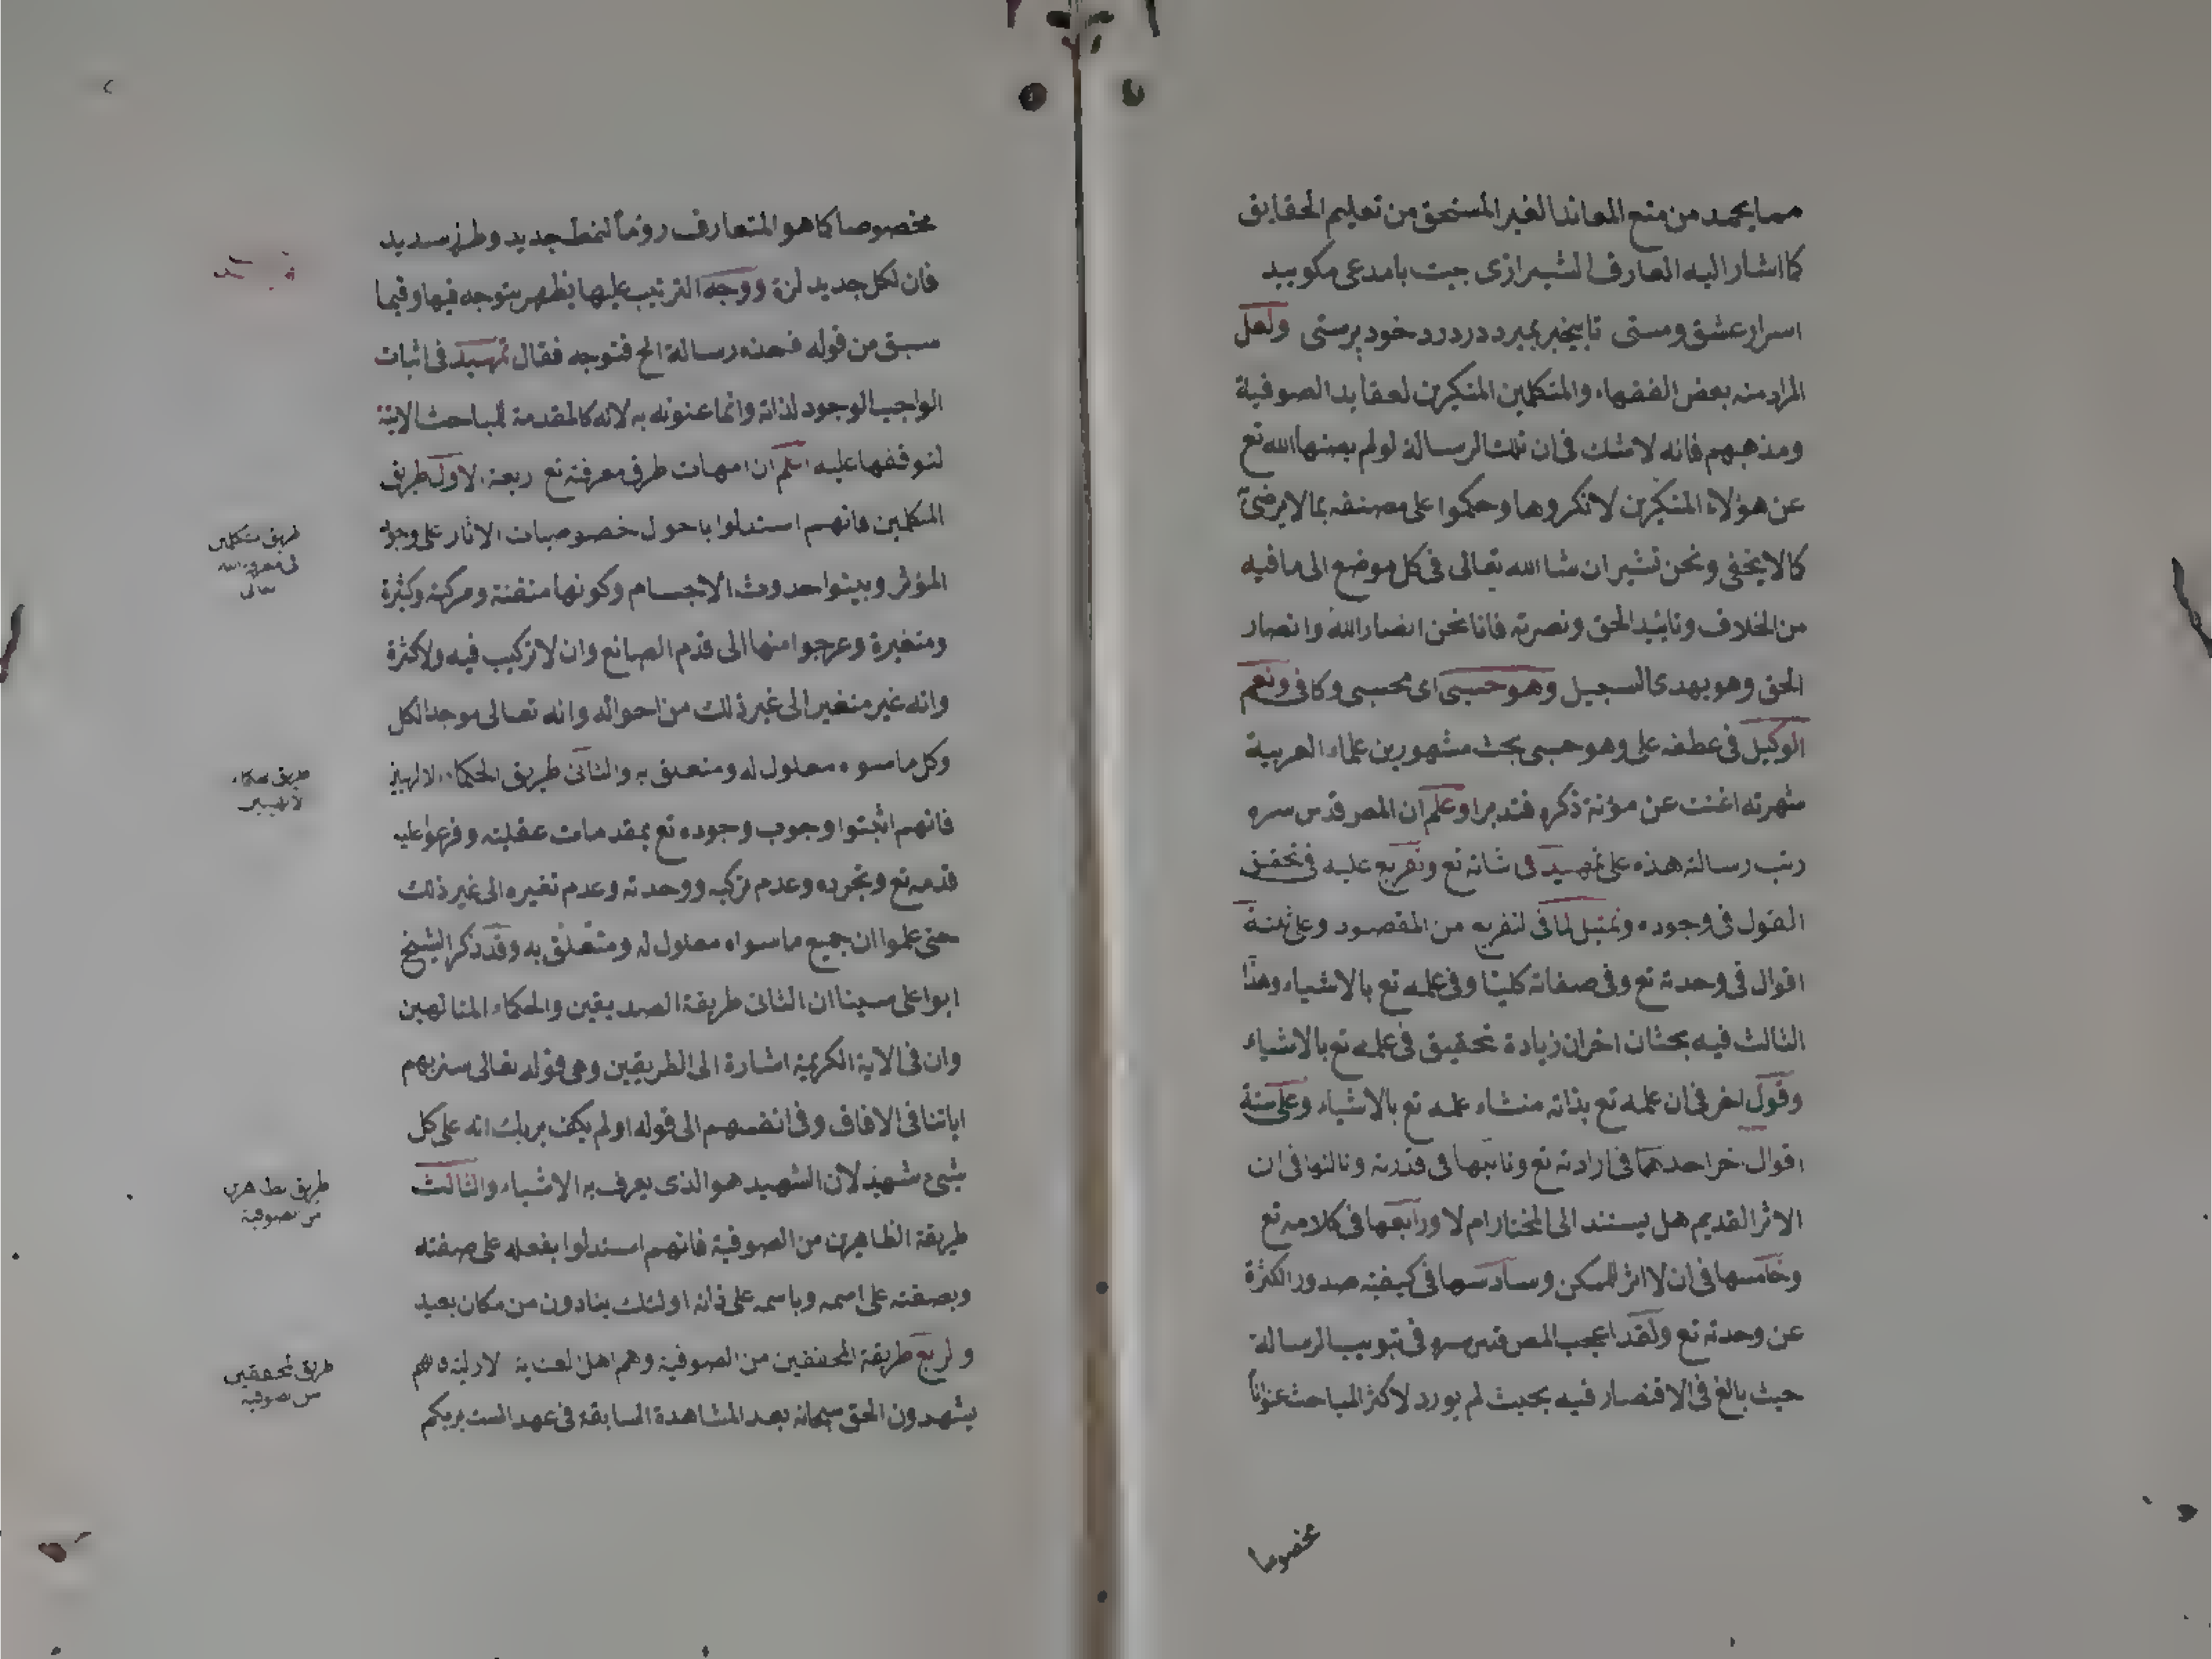 مما يحمد من منع المعاند الغير المستحق من تعليم الحقايق
كما اشار اليه العارف الشيرازى بيت بامدعى مكوييد
اسرار عشق ومستى تا بيخبر بميرد در درد خود پرستى ولعل
المراد منه بعض الفقهاء والمتكلمين المنكرين لعقايد الصوفية
ومذهبهم فانه لا شك فى ان تلك الرسالة لو لم يصنها الله تع
عن هؤلاء المنكرين لانكروها وحكموا على مصنفه بما لا يرضى
كما لا يخفى ونحن نشير ان شا الله تعالى فى كل موضع الى ما فيه
من الخلاف وتاييد الحق ونصرته فانا نحن انصار الله وانصار
الحق وهو يهدى السبيل وهو حسبى اى محسبى وكافى ونعم
الوكيل فى عطفه على وهو حسبى بحث مشهور بين علماء العربية
شهرته اغنت عن مؤنة ذكره فتدبر واعلم ان المص قدس سره
رتب رسالته هذه على تمهيد فى شانه تع وتفريع عليه فى تحقيق
القول فى وجوده وتمثيل لما فى لتفريع من المقصود وعلى ثلثة
اقوال فى وحدته تع وفى صفاته كليتا وفى علمه تع بالاشياء وهذا
الثالث فيه بحثان اخران زيادة تحقيق فى علمه تع بالاشياء
وقول اخر فى ان علمه تع بذاته منشاء علمه تع بالاشياء وعلى ستة
اقوال اخر احدهما فى ارادته تع وثانيها فى قدرته وثالثها فى ان
الاثر القديم هل يستند الى المختار ام لا ورابعها فى كلامه تع
وخامسها فى ان لا اثر للممكن وسادسها فى كيفية صدور الكثرة
عن وحدته تع ولقد اعجب المص قدس سره فى تبويب الرسالة
حيث بالغ فى الاقتصار فيه بحيث لم يورد لاكثر المباحث عنوانا
مخصوصا
مخصوصا كما هو المتعارف روما لنمط جديد وطرز سديد
فان لكل جديد لذة ووجه الترتيب عليها يظهر بتوجه فيها وفيما
سبق من قوله فهذه رسالة الخ فتوجه فقال تمهيد فى اثبات
الواجب الوجود لذاته وانما عنونه به لانه كالمقدمة للمباحث الاتية
لتوقفها عليه اعلم ان امهات طرق معرفته تع اربعة الاول طريق
المتكلمين فانهم استدلوا باحوال خصوصيات الاثار على وجود
المؤثر وبينوا حدوث الاجسام وكونها متقنة ومركبة وكثرة
ومتغيرة وعرجوا منها الى قدم الصانع وان لا تركيب فيه ولا كثرة
وانه غير متغير الى غير ذلك من احواله وانه تعالى موجد الكل
وكل ما سواه معلول له ومتعلق به والثانى طريق الحكماء الالهيين
فانهم اثبتوا وجوب وجوده تع بمقدمات عقلية وفرعوا عليه
قدمه تع وتجرده وعدم تركبه ووحدته وعدم تغيره الى غير ذلك
حتى علموا ان جميع ما سواه معلول له ومتعلق به وقد ذكر الشيخ
ابو اعلى سينا ان الثانى طريقة الصديقين والحكماء المتالهين
وان فى الاية الكريمة اشارة الى الطريقين وهى قوله تعالى سنريهم
اياتنا فى الافاق وفى انفسهم الى قوله اولم يكف بربك انه على كل
شىء شهيد لان الشهيد هو الذى يعرف به الاشياء والثالث
طريقة الظاهرين من الصوفية فانهم استدلوا بفعله على صفته
وبصفته على اسمه وباسمه على ذاته اولئك ينادون من مكان بعيد
والرابع طريقة المحققين من الصوفية وهم اهل العناية الازلية وهم
يشهدون الحق سبحانه بعد المشاهدة السابقة فى عهد الست بربكم
طريق متكلمين
فى معرفة الله
تعالى
طريق حكماء
الالهيين
طريق ظاهرين
من صوفية
طريق محققين
من صوفية